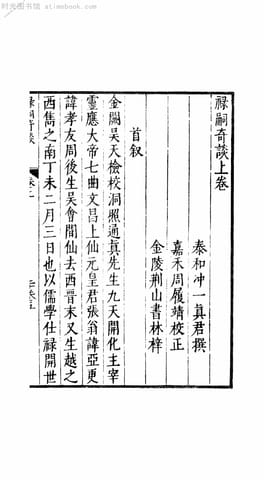 时光图书馆 - atimebook.com
祿嗣奇談上卷
秦和冲一真君撰
嘉禾周履靖校正
金陵荆山書林梓
首叙
金闕昊天檢校洞照通真先生九天開化主宰
靈應大帝七曲文昌上仙元皇君張翁諱亞更
諱孝友周後生吳會間仙去西晋末又生越之
西雋之南丁未二月三日也以儒學仕祿開世
祿嗣奇談